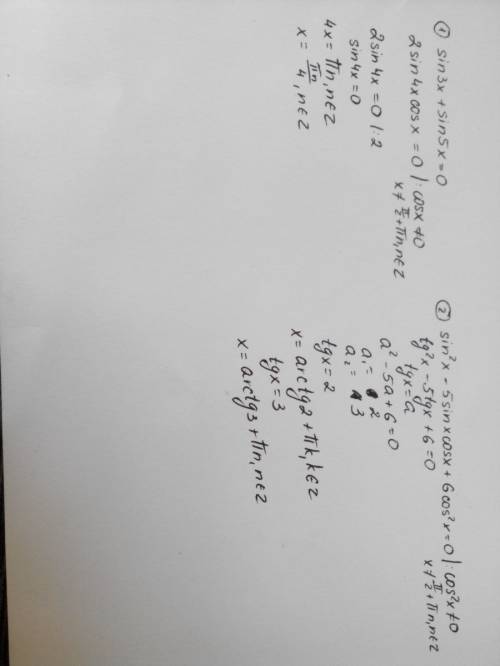 ① sin3x + sin5x = 0
2sin4x cosx = 0 |: cosx ≠ 0
x ≠ π/2 + πn, n∈Z
2sin4x = 0 |:2
sin4x = 0
4x = πn, n∈Z
x = πn/4, n∈Z
② sin²x - 5sinxcosx + 6cos²x = 0 |: cos²x ≠ 0
x ≠ π/2 + πn, n∈Z
tg²x - 5tgx + 6 = 0
tgx = a
a² - 5a + 6 = 0
a₁ = 2
a₂ = 3
tgx = 2
x = arctg2 + πk, k∈Z
tgx = 3
x = arctg3 + πn, n∈Z